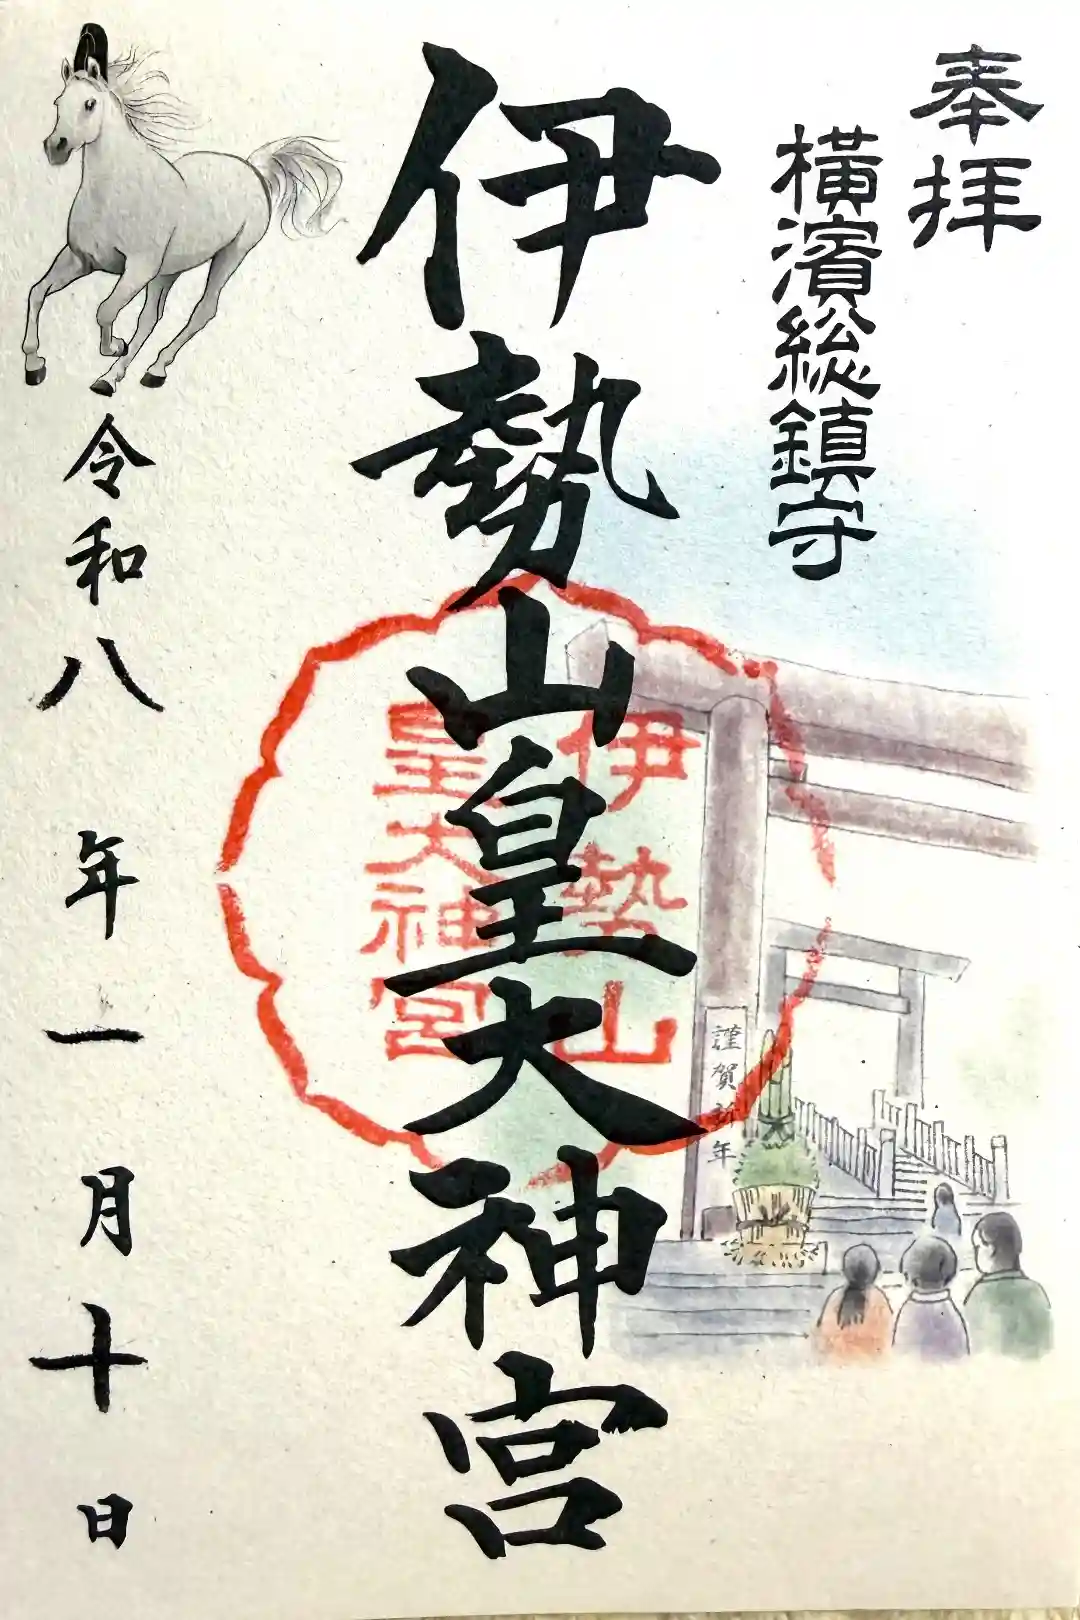 奉拝
横濱総鎮守
伊勢山皇大神宮
伊勢山
皇大神宮
謹賀新年
令和八年一月十日